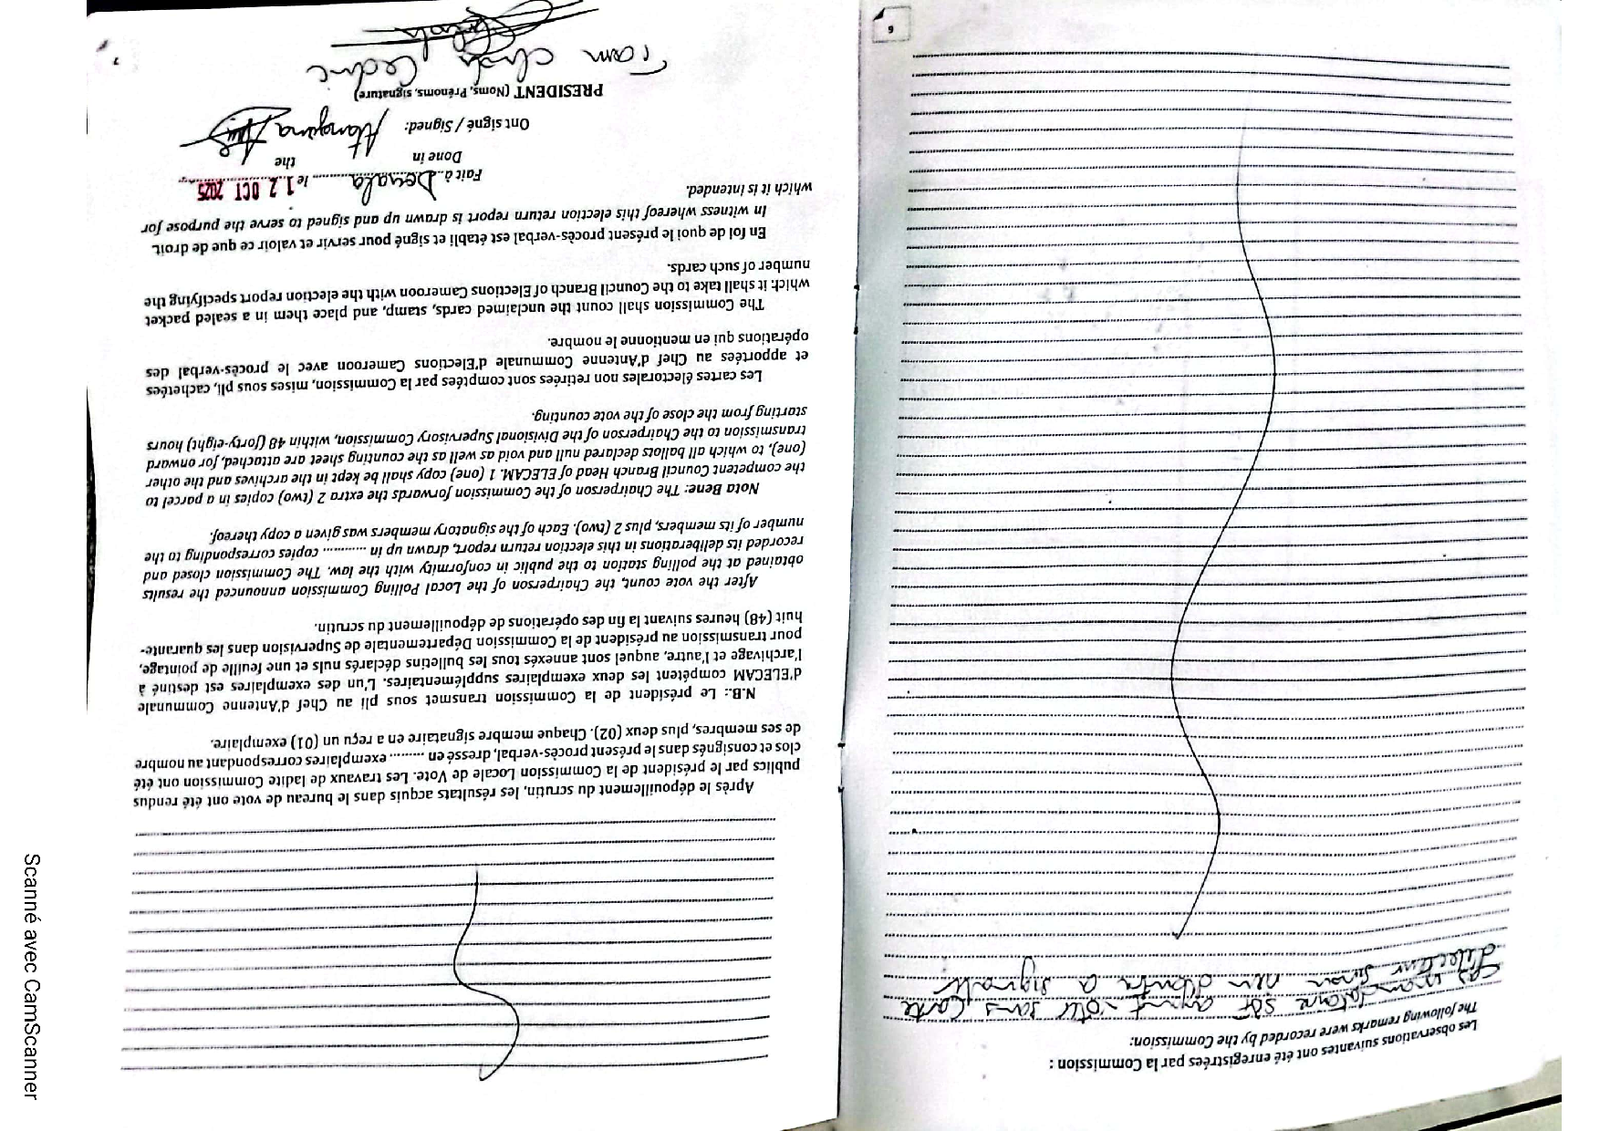 6
Les observations suivantes ont été enregistrées par la Commission :
The following remarks were recorded by the Commission:
ayant voté sans carte
signaler
Après le dépouillement du scrutin, les résultats acquis dans le bureau de vote ont été rendus
publics par le président de la Commission Locale de Vote. Les travaux de ladite Commission ont été
clos et consignés dans le présent procès-verbal, dressé en .......... exemplaires correspondant au nombre
de ses membres, plus deux (02). Chaque membre signataire en a reçu un (01) exemplaire.
N.B.: Le président de la Commission transmet sous pli au Chef d'Antenne Communale
d'ELECAM compétent les deux exemplaires supplémentaires. L'un des exemplaires est destiné à
l'archivage et l'autre, auquel sont annexés tous les bulletins déclarés nuls et une feuille de pointage,
pour transmission au président de la Commission Départementale de Supervision dans les quarante-
huit (48) heures suivant la fin des opérations de dépouillement du scrutin.
After the vote count, the Chairperson of the Local Polling Commission announced the results
obtained at the polling station to the public in conformity with the law. The Commission closed and
recorded its deliberations in this election return report, drawn up in .......... copies corresponding to the
number of its members, plus 2 (two). Each of the signatory members was given a copy thereof.
Nota Bene: The Chairperson of the Commission forwards the extra 2 (two) copies in a parcel to
the competent Council Branch Head of ELECAM. 1 (one) copy shall be kept in the archives and the other
(one), to which all ballots declared null and void as well as the counting sheet are attached, for onward
transmission to the Chairperson of the Divisional Supervisory Commission, within 48 (forty-eight) hours
starting from the close of the vote counting.
Les cartes électorales non retirées sont comptées par la Commission, mises sous pli, cachetées
et apportées au Chef d'Antenne Communale d'Elections Cameroon avec le procès-verbal des
opérations qui en mentionne le nombre.
The Commission shall count the unclaimed cards, stamp, and place them in a sealed packet
which it shall take to the Council Branch of Elections Cameroon with the election report specifying the
number of such cards.
En foi de quoi le présent procès-verbal est établi et signé pour servir et valoir ce que de droit.
In witness whereof this election return report is drawn up and signed to serve the purpose for
which it is intended.
Fait à Douala le 12 OCT 2025
Done in the
Ont signé / Signed: Atangana
PRESIDENT (Noms, Prénoms, signature)
Cedric
7
Scanné avec CamScanner